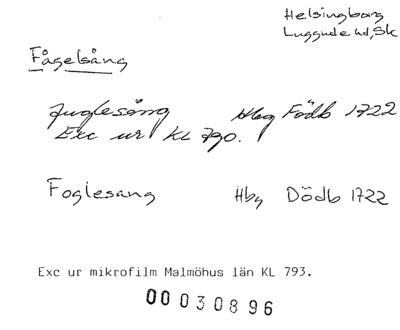 Helsingborg
Luggude hd, Sk
Fågelsång
Fuglesång Hbg Födb 1722
Exc ur KL 790.
Foglesang Hbg Dödb 1722
Exc ur mikrofilm Malmöhus län KL 793.
00 030896